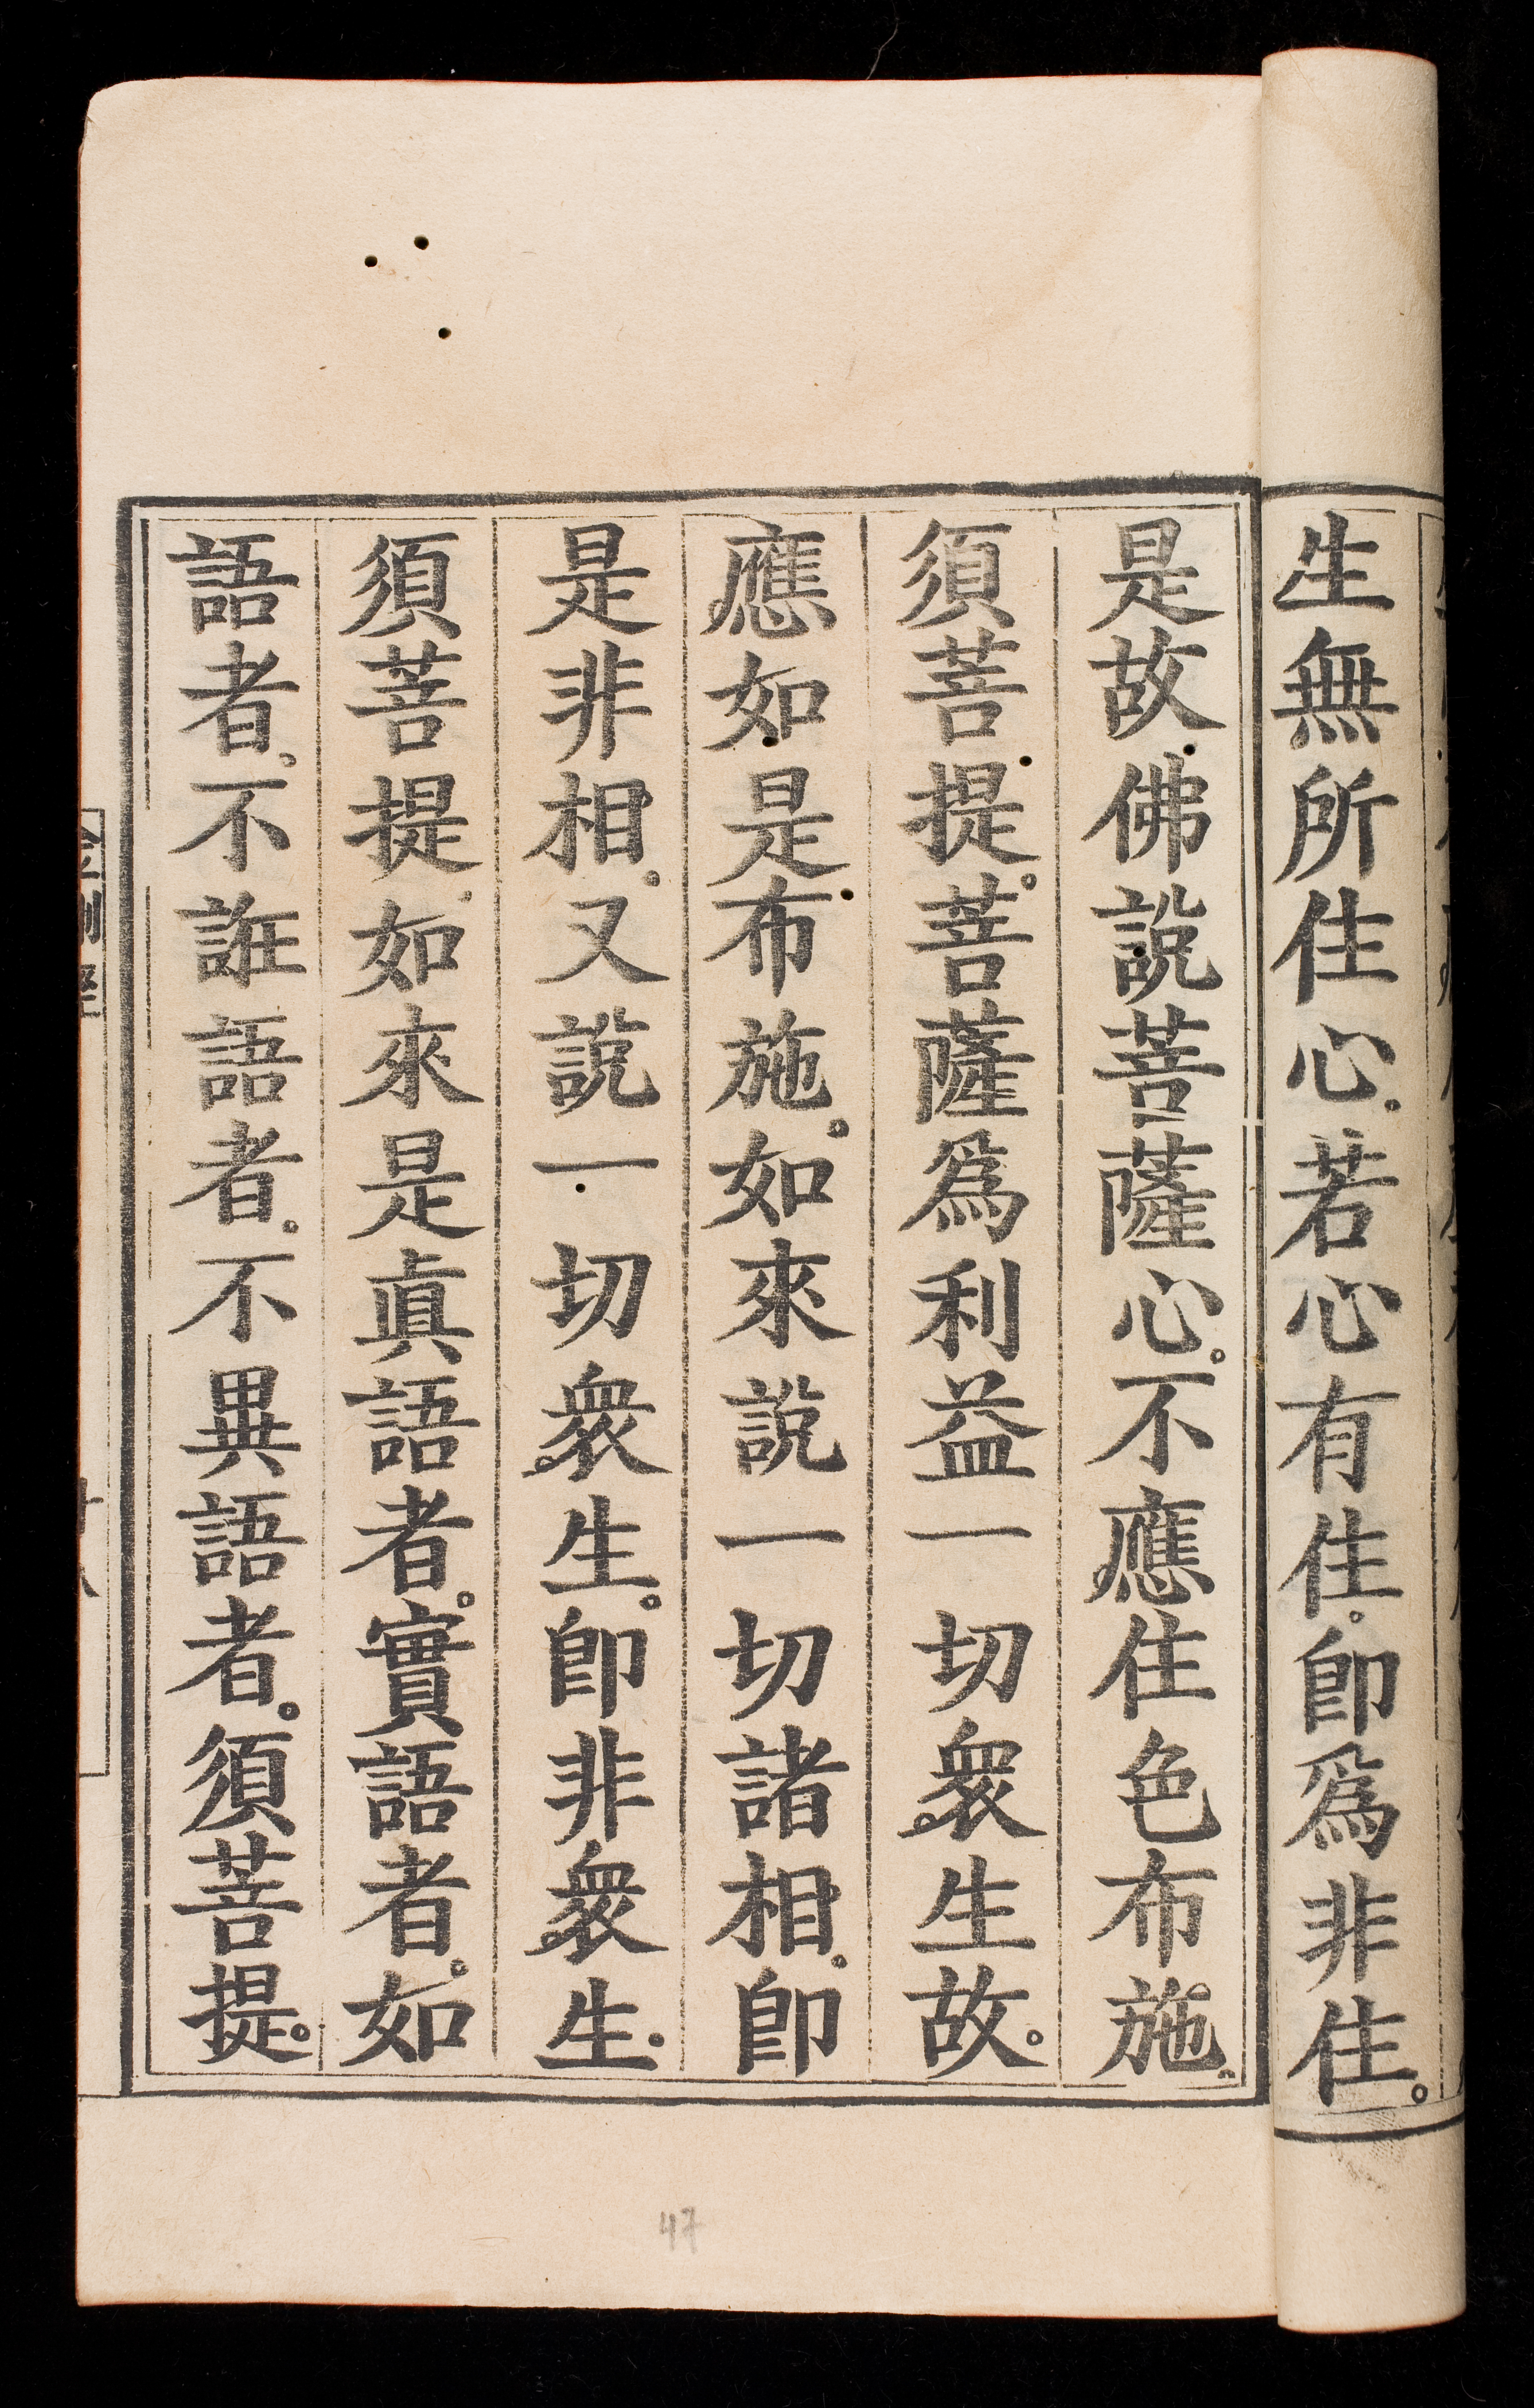 生無所住心。若心有住。卽爲非住。
是故佛說菩薩心。不應住色布施。
須菩提。菩薩爲利益一切衆生故。
應如是布施。如來說一切諸相。卽
是非相。又說一切衆生。卽非衆生。
須菩提。如來是眞語者。實語者。如
語者。不誑語者。不異語者。須菩提。
47